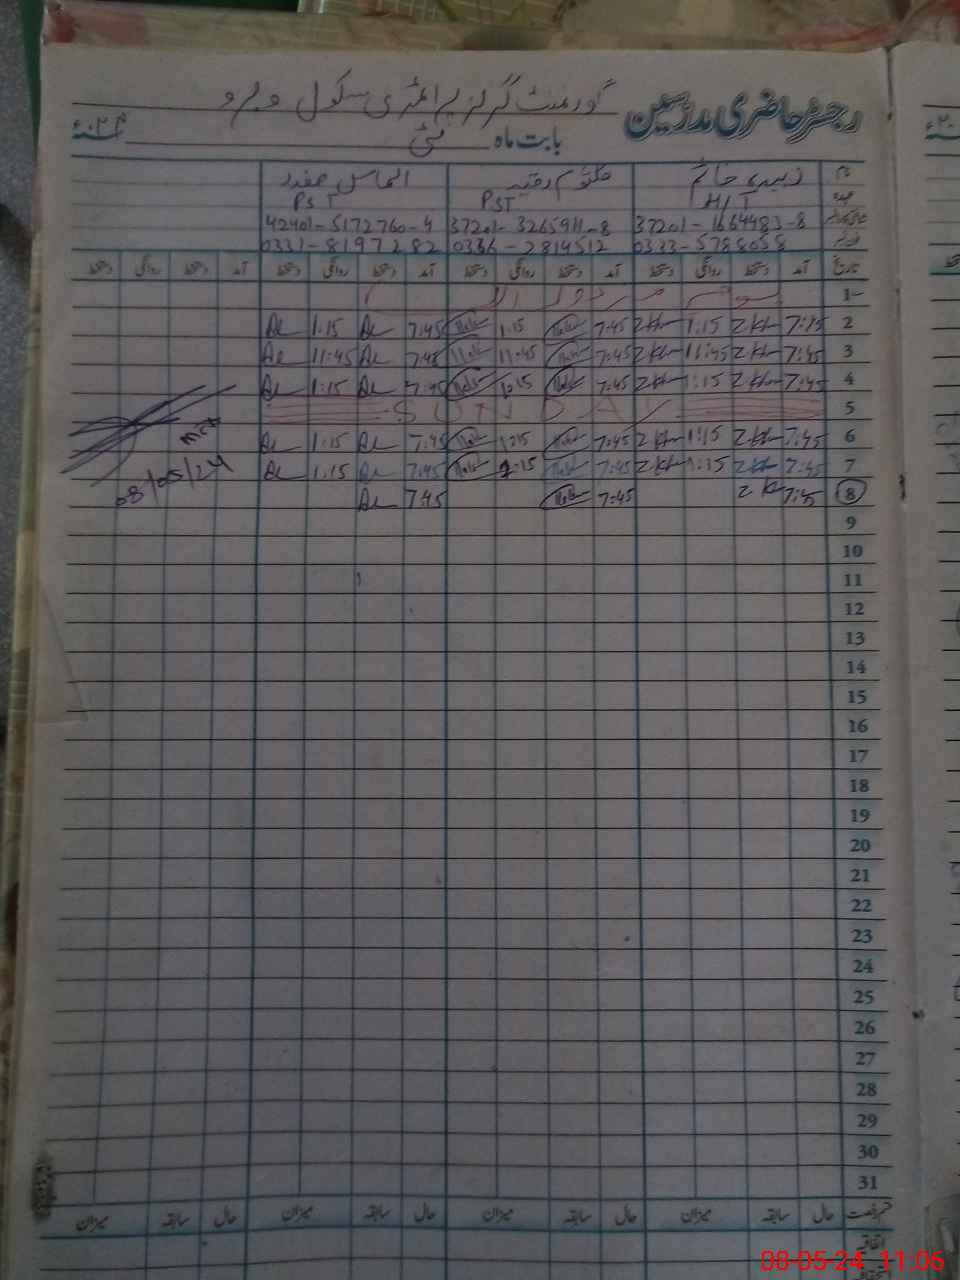 رجسٹر حاضری مدرسین گورنمنٹ گرلز پرائمری سکول
بابت ماہ مئی ۲۰۲۴ء
نام زبیدہ خانم کلثوم رقیہ الماس صفدر
عہدہ H/T PST PST
37201-1664483-8 37201-3265911-8 42401-5172760-4
فون نمبر 0333-5788058 0336-2814512 0331-8197282
تاریخ آمد دستخط روانگی دستخط آمد دستخط روانگی دستخط آمد دستخط روانگی دستخط آمد دستخط روانگی دستخط
1
2 7:45 Z Kh 1:15 Z Kh 7:45 1:15 7:45 1:15
3 7:45 Z Kh 11:45 Z Kh 7:45 11:45 7:45 11:45
4 7:45 Z Kh 1:15 Z Kh 7:45 1:15 7:45 1:15
5 SUNDAY
6 7:45 Z Kh 1:15 Z Kh 7:45 1:15 7:45 1:15
7 7:45 Z Kh 1:15 Z Kh 7:45 1:15 7:45 1:15
08/05/24
8 7:45 Z Kh 7:45 7:45
9
10
11
12
13
14
15
16
17
18
19
20
21
22
23
24
25
26
27
28
29
30
31
قسم رخصت حال سابقہ میزان حال سابقہ میزان حال سابقہ میزان حال سابقہ میزان
اتفاقیہ
08-05-24 11:06